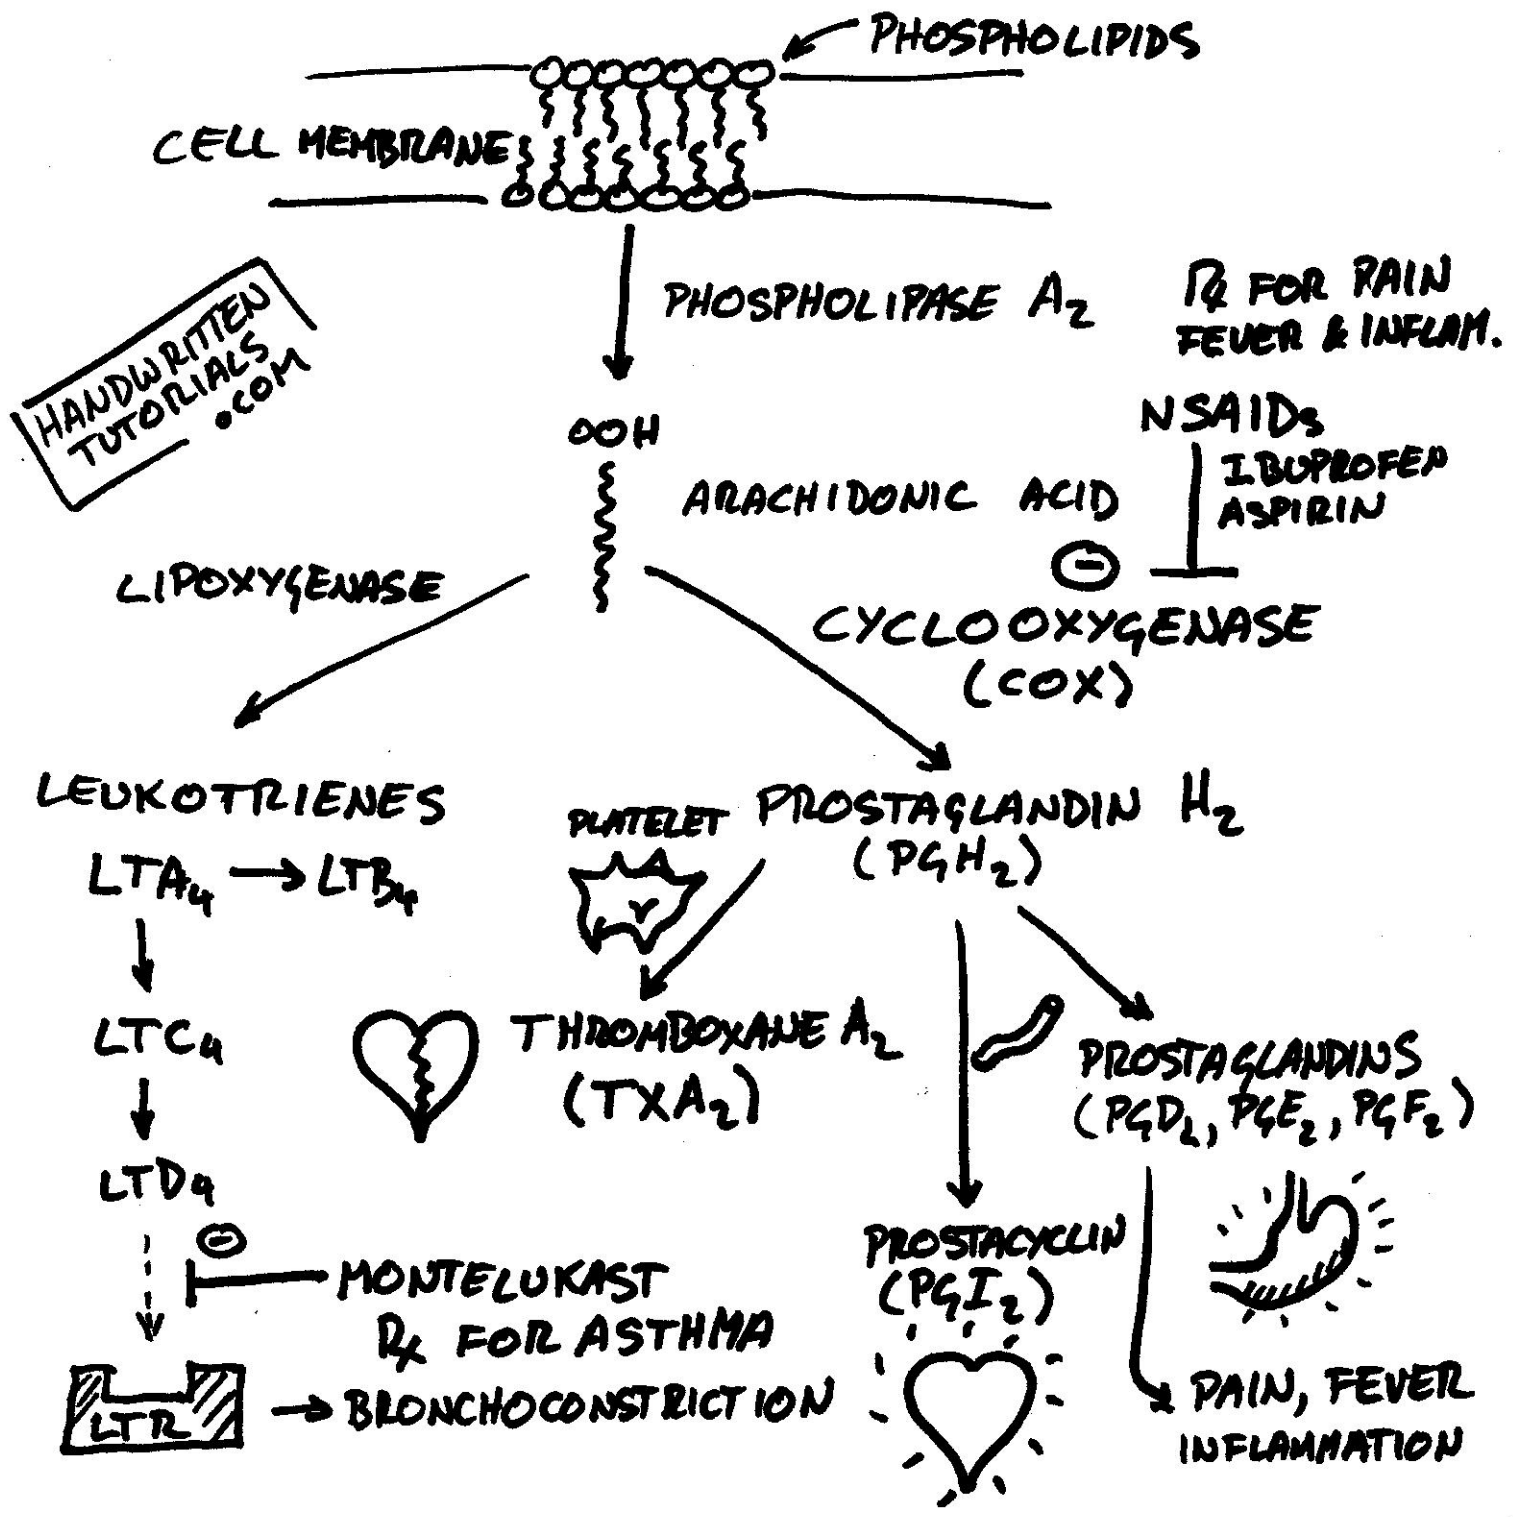 PHOSPHOLIPIDS
CELL MEMBRANE
HANDWRITTEN
TUTORIALS
.COM
PHOSPHOLIPASE A2
Rx FOR PAIN
FEVER & INFLAM.
NSAIDs
IBUPROFEN
ASPIRIN
OOH
ARACHIDONIC ACID
LIPOXYGENASE
-
CYCLOOXYGENASE
(COX)
LEUKOTRIENES
LTA4 → LTB4
LTC4
LTD4
-
MONTELUKAST
Rx FOR ASTHMA
LTR → BRONCHOCONSTRICTION
PLATELET
PROSTAGLANDIN H2
(PGH2)
THROMBOXANE A2
(TXA2)
PROSTACYCLIN
(PGI2)
PROSTAGLANDINS
(PGD2, PGE2, PGF2)
PAIN, FEVER
INFLAMMATION